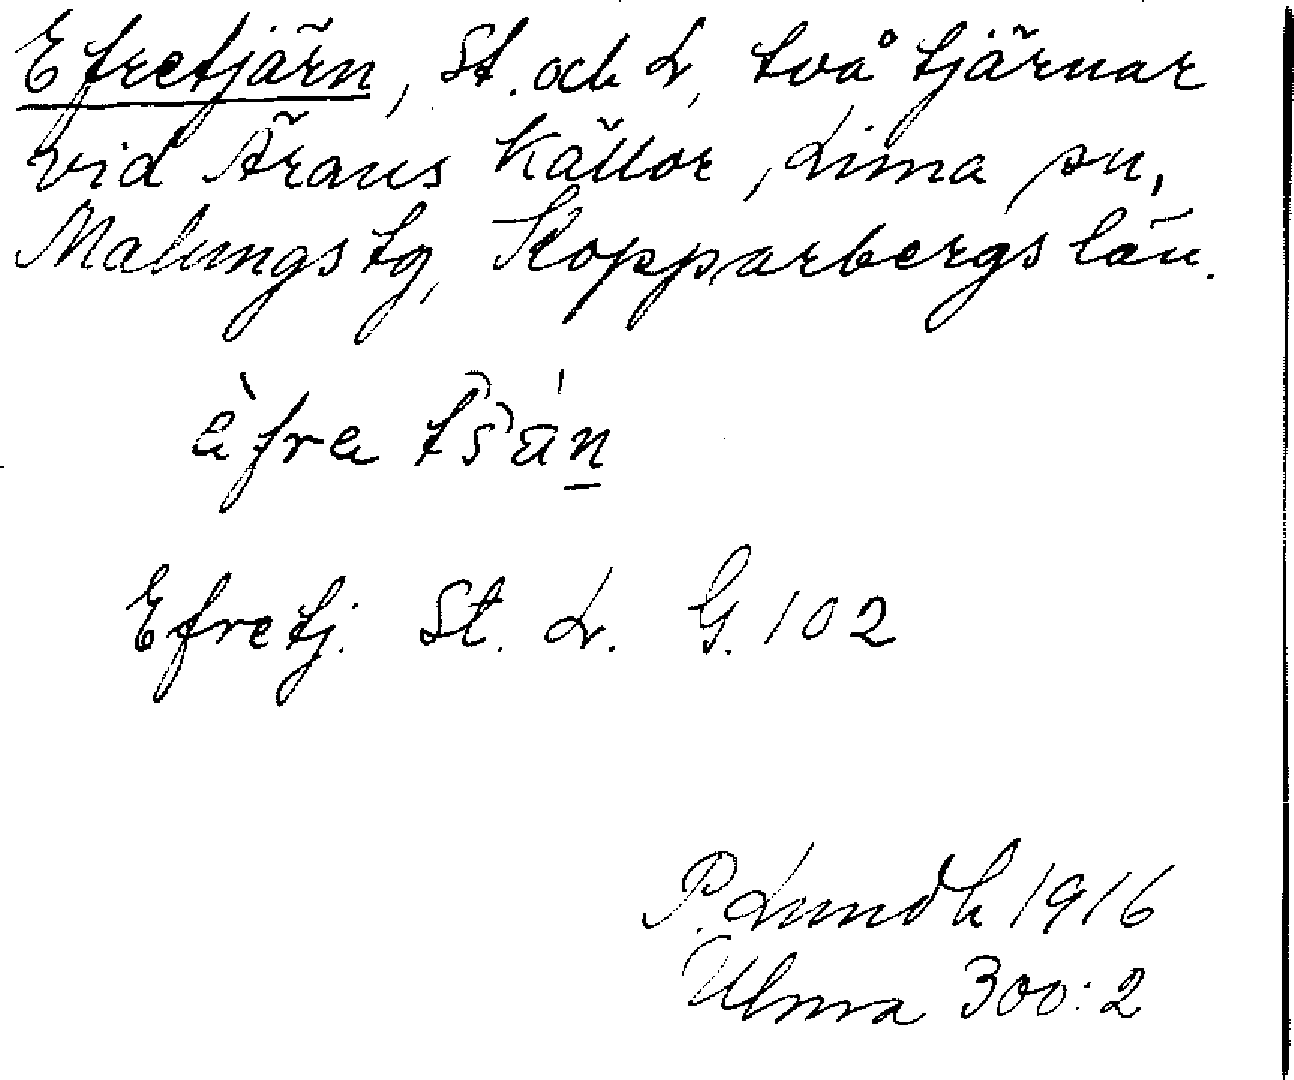 Efretjärn, St. och L, två tjärnar
vid Ärans källor, Lima sn,
Malungs tg, Kopparbergs län.
Efretj. St. L. G. 102
P. Lundh 1916
Ulma 300:2